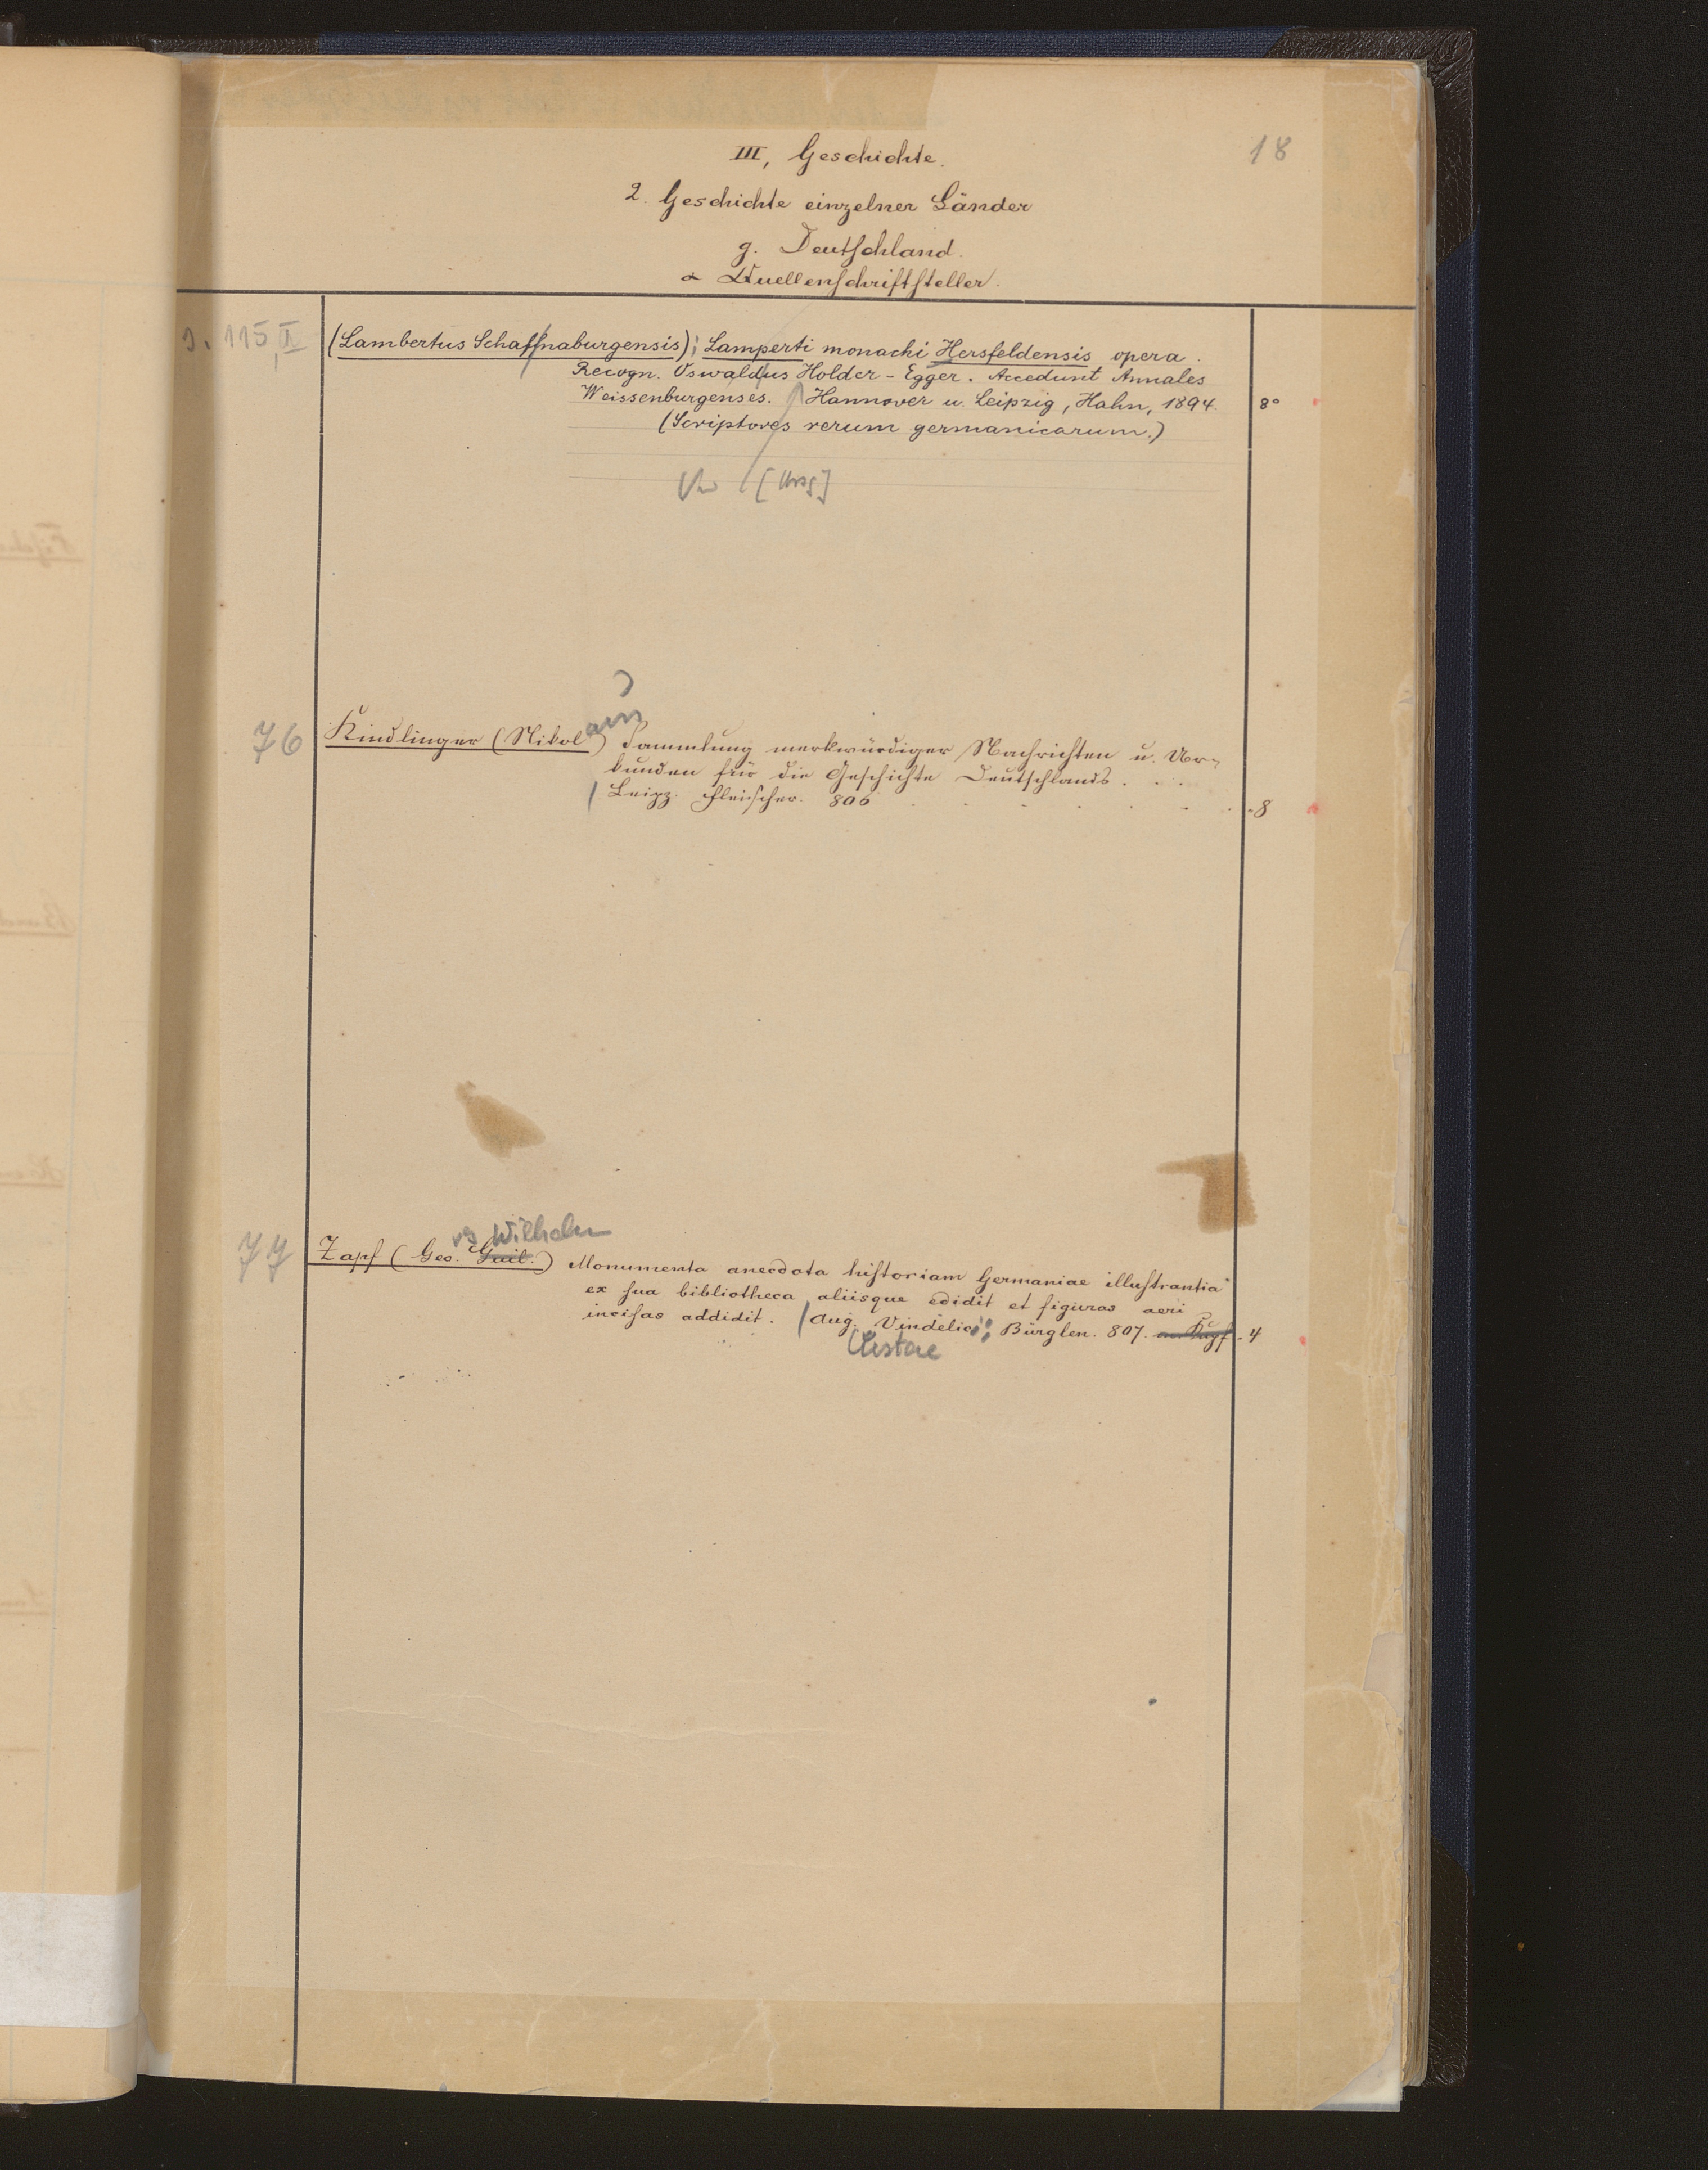 18
III, Geschichte.
2. Geschichte einzelner Länder
g. Deutschland.
α Quellenschriftsteller.
115, II (Lambertus Schaffnaburgensis); Lamperti monachi Hersfeldensis opera.
Recogn. Oswaldus Holder-Egger. Accedunt Annales
Weissenburgenses. Hannover u. Leipzig, Hahn, 1894. 8°
(Scriptores rerum germanicarum.)
aus
76 Kindlinger (Nikol) Sammlung merkwürdiger Nachrichten u. Ur-
kunden für die Geschichte Deutschlands.
Leipz. Fleischer. 806 - 8
Wilhelm
77 Zapf (Geo. Guil.) Monumenta anecdota historiam Germaniae illustrantia
ex sua bibliotheca aliisque edidit et figuras aeri
incisas addidit. Aug. Vindelic; Bürglen. 807. - 4